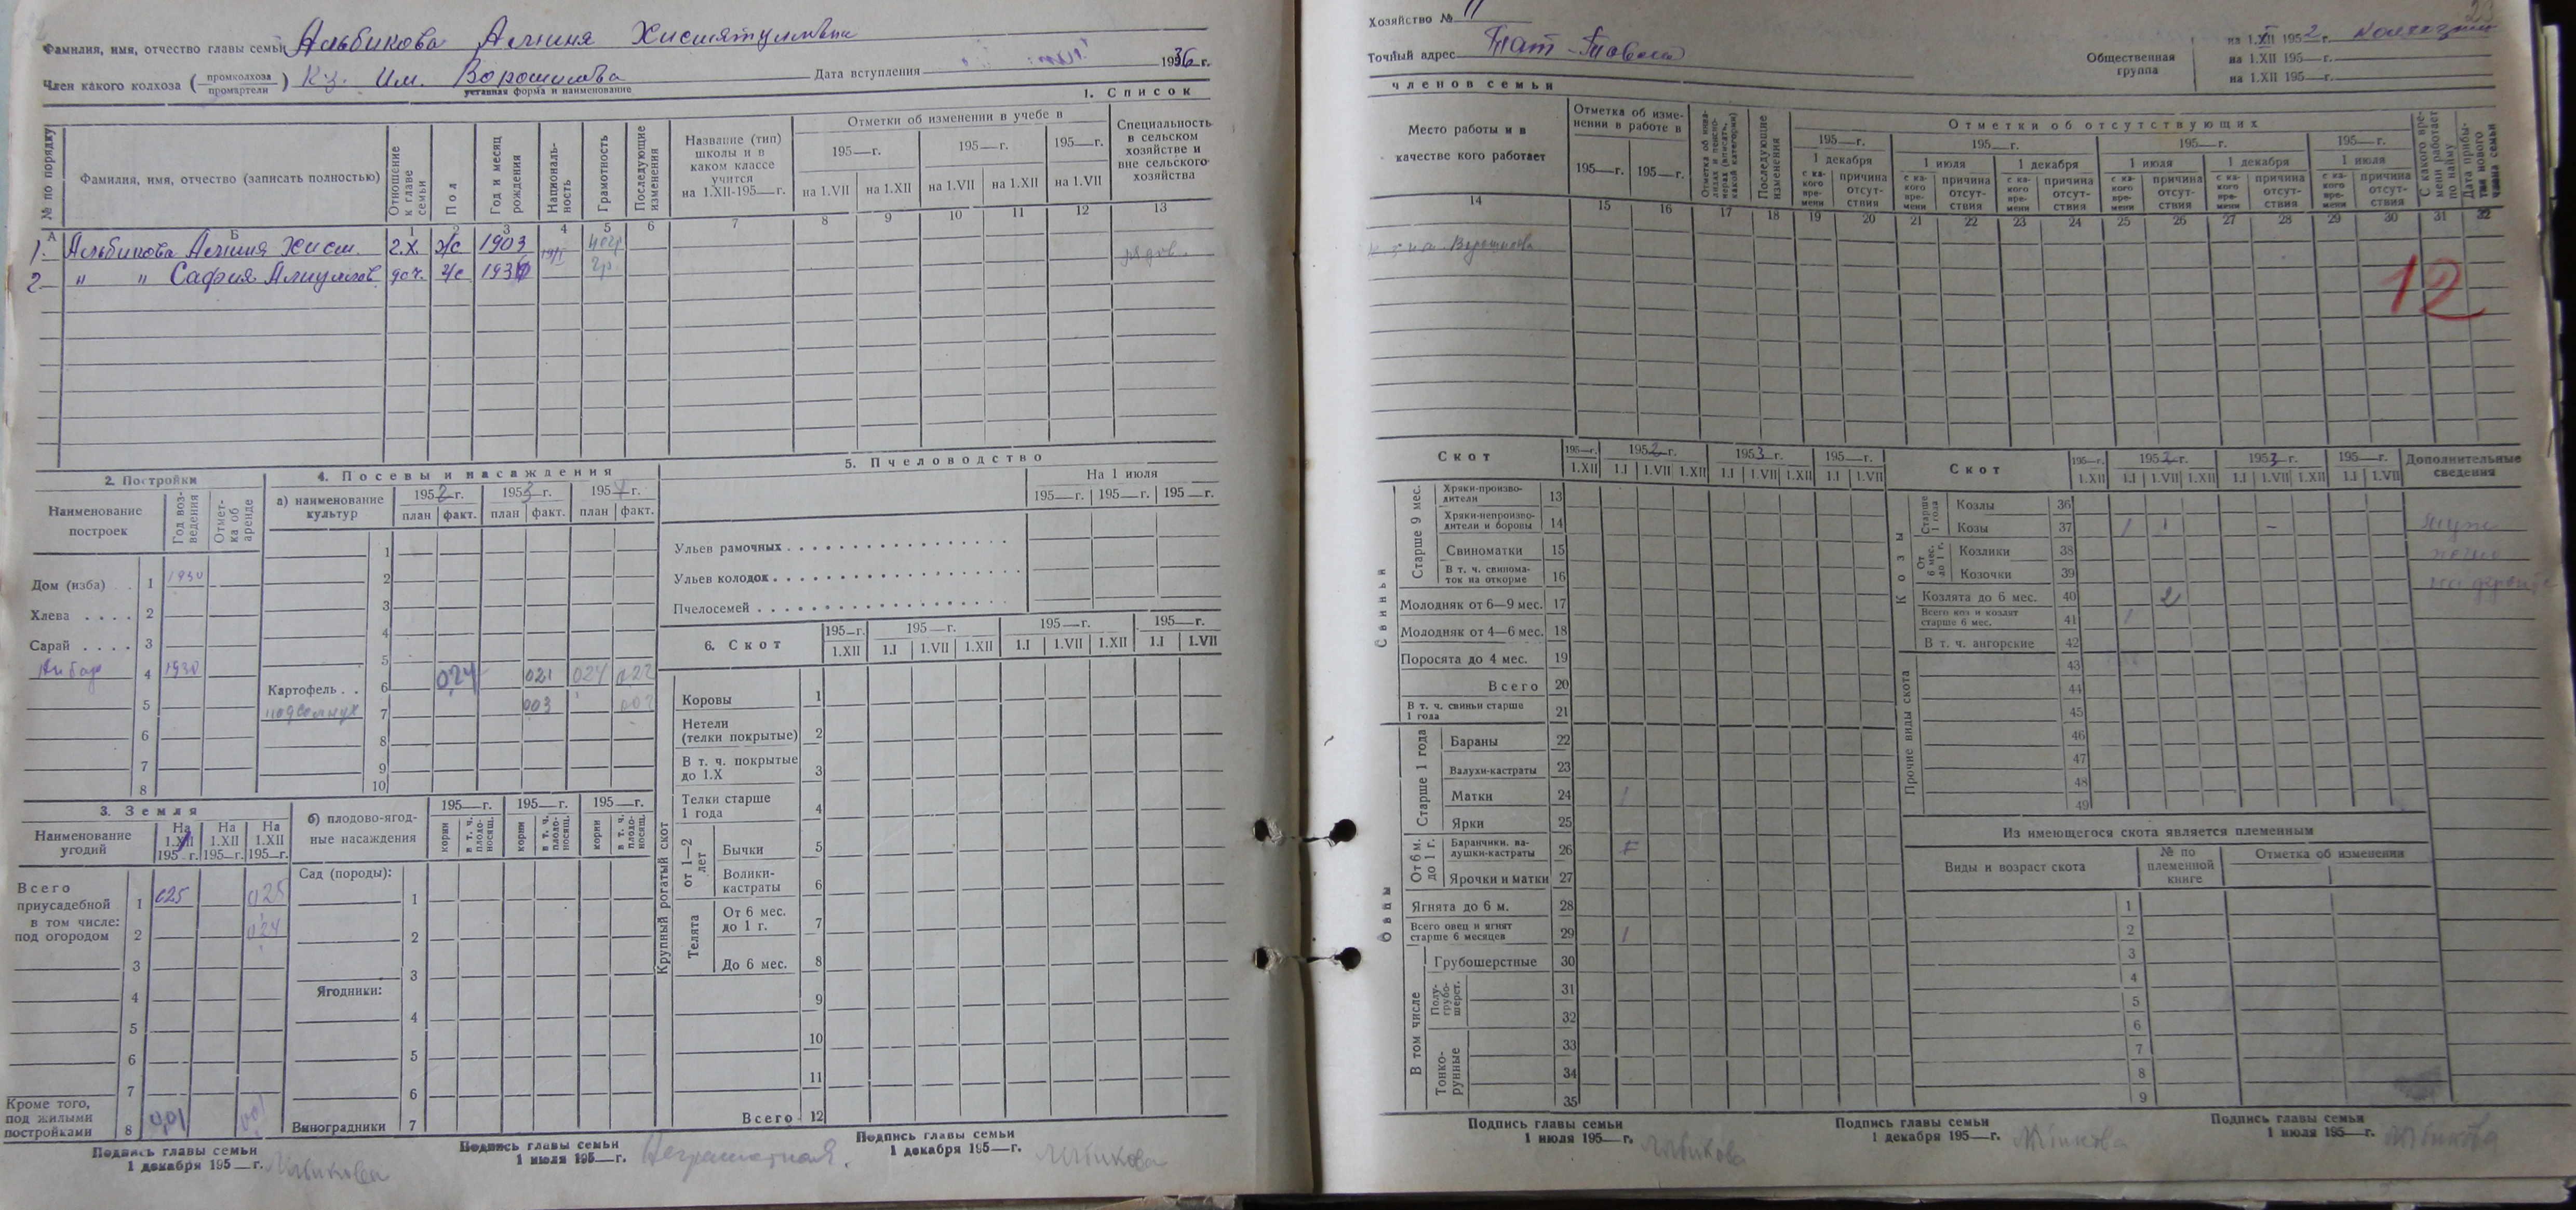 Фамилия, имя, отчество главы семьи Альбикова
Член какого колхоза (промколхоза промартели) Кз. Им. Ворошилова Дата вступления 1936 г.
уставная форма и наименование
1. Список
№ по порядку
Фамилия, имя, отчество (записать полностью)
Отношение к главе семьи
Пол
Год и месяц рождения
Националь-
ность
Грамотность
Последующие изменения
Название (тип)
школы и в
каком классе
учится
на 1.XII-195—г.
Отметки об изменении в учебе в
195—г. 195—г. 195—г.
на 1.VII на 1.XII на 1.VII на 1.XII на 1.VII
Специальность
в сельском
хозяйстве и
вне сельского
хозяйства
А Б 1 2 3 4 5 6 7 8 9 10 11 12 13
1. Альбикова г.х. ж/с 1903 негр рядов.
2 " " София доч. ж/с гр.
2. Постройки
Наименование
построек
Год воз-
ведения
Отмет-
ка об
аренде
Дом (изба) . . 1 1930
Хлева . . . . 2
Сарай . . . . 3
Анбар 4 1930
5
6
7
8
3. Земля
Наименование
угодий
На
1.XII
195—г.
На
1.XII
195—г.
На
1.XII
195—г.
Всего
приусадебной 1 025 025
в том числе:
под огородом 2 024
3
4
5
6
7
Кроме того,
под жилыми
постройками 8 0,01 001
4. Посевы и насаждения
а) наименование
культур
1952 г. 1953 г. 1954 г.
план факт. план факт. план факт.
1
2
3
4
5
Картофель . . 6 0,24 021 024 022
7 003
8
9
10
б) плодово-ягод-
ные насаждения
195—г. 195—г. 195—г.
корни в т. ч. плодо-носящ. корни в т. ч. плодо-носящ. корни в т. ч. плодо-носящ.
Сад (породы):
1
2
3
Ягодники:
4
5
6
Виноградники 7
5. Пчеловодство
На 1 июля
195—г. 195—г. 195—г.
Ульев рамочных
Ульев колодок
Пчелосемей
6. Скот
195—г. 195—г. 195—г. 195—г.
1.XII 1.I 1.VII 1.XII 1.I 1.VII 1.XII 1.I 1.VII
Крупный рогатый скот
Коровы 1
Нетели
(телки покрытые) 2
В т. ч. покрытые
до 1.X 3
Телки старше
1 года 4
от 1—2 лет
Бычки 5
Волики-
кастраты 6
Телята
От 6 мес.
до 1 г. 7
До 6 мес. 8
9
10
11
Всего 12
Подпись главы семьи
1 декабря 195—г. Альбикова
Подпись главы семьи
1 июля 195—г. Неграмотная.
Подпись главы семьи
1 декабря 195—г. Альбикова
Хозяйство № 11
Точный адрес
Общественная
группа
1952 г.
на 1.XII 195—г.
на 1.XII 195—г.
членов семьи
Место работы и в
качестве кого работает
Отметка об изме-
нении в работе в
195—г. 195—г.
Отметка об инва-
лидах и пенсио-
нерах (вписать,
какой категории)
Последующие
изменения
Отметки об отсутствующих
195—г. 195—г. 195—г. 195—г.
1 декабря 1 июля 1 декабря 1 июля 1 декабря 1 июля
с ка-
кого
вре-
мени
причина
отсут-
ствия
с ка-
кого
вре-
мени
причина
отсут-
ствия
с ка-
кого
вре-
мени
причина
отсут-
ствия
с ка-
кого
вре-
мени
причина
отсут-
ствия
с ка-
кого
вре-
мени
причина
отсут-
ствия
с ка-
кого
вре-
мени
причина
отсут-
ствия
С какого вре-
мени работает
по найму
Дата прибы-
тия нового
члена семьи
14 15 16 17 18 19 20 21 22 23 24 25 26 27 28 29 30 31 32
Ворошилова
12
Скот
195—г. 1952 г. 1953 г. 195—г.
1.XII 1.I 1.VII 1.XII 1.I 1.VII 1.XII 1.I 1.VII
Свиньи
Старше 9 мес.
Хряки-произво-
дители 13
Хряки-непроизво-
дители и боровы 14
Свиноматки 15
В т. ч. свинома-
ток на откорме 16
Молодняк от 6—9 мес. 17
Молодняк от 4—6 мес. 18
Поросята до 4 мес. 19
Всего 20
В т. ч. свиньи старше
1 года 21
Овцы
Старше 1 года
Бараны 22
Валухи-кастраты 23
Матки 24 1
Ярки 25
От 6 м. до 1 г.
Баранчики, ва-
лушки-кастраты 26
Ярочки и матки 27
Ягнята до 6 м. 28
Всего овец и ягнят
старше 6 месяцев 29 1
В том числе
Грубошерстные 30
Полу-
грубо-
шерст.
31
32
Тонко-
рунные
33
34
35
Скот
195—г. 1952 г. 1953 г. 195—г.
1.XII 1.I 1.VII 1.XII 1.I 1.VII 1.XII 1.I 1.VII
Дополнительные
сведения
Козы
Старше 1 года
Козлы 36
Козы 37 1 1 –
От 6 мес. до 1 г.
Козлики 38
Козочки 39
Козлята до 6 мес. 40 2
Всего коз и козлят
старше 6 мес. 41 1
В т. ч. ангорские 42
Прочие виды скота
43
44
45
46
47
48
49
Из имеющегося скота является племенным
Виды и возраст скота
№ по
племенной
книге
Отметка об изменении
1
2
3
4
5
6
7
8
9
Подпись главы семьи
1 июля 195—г. Альбикова
Подпись главы семьи
1 декабря 195—г. Альбикова
Подпись главы семьи
1 июля 195—г. Альбикова